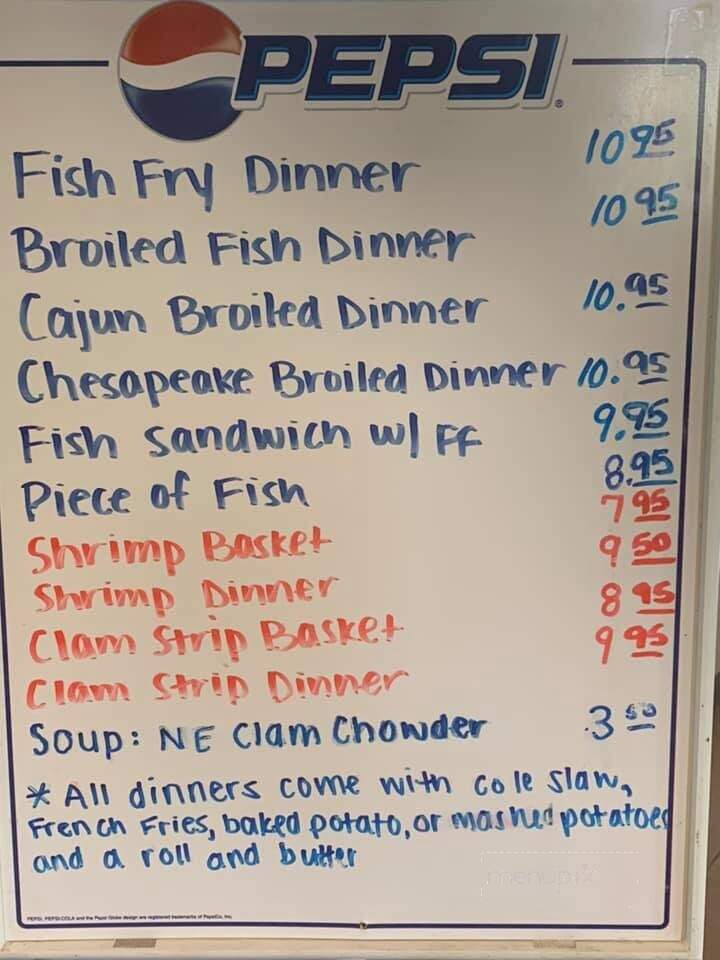 PEPSI
Fish Fry Dinner 10 95
Broiled Fish Dinner 10 95
Cajun Broiled Dinner 10.95
Chesapeake Broiled Dinner 10.95
Fish Sandwich w/ FF 9.95
Piece of Fish 8.95
Shrimp Basket 7 95
Shrimp Dinner 9 50
Clam Strip Basket 8 95
Clam Strip Dinner 9 95
Soup: NE Clam Chowder 3 50
* All dinners come with cole slaw,
French Fries, baked potato, or mashed potatoes
and a roll and butter
menupix
PEPSI, PEPSI-COLA and the Pepsi Globe design are registered trademarks of PepsiCo, Inc.